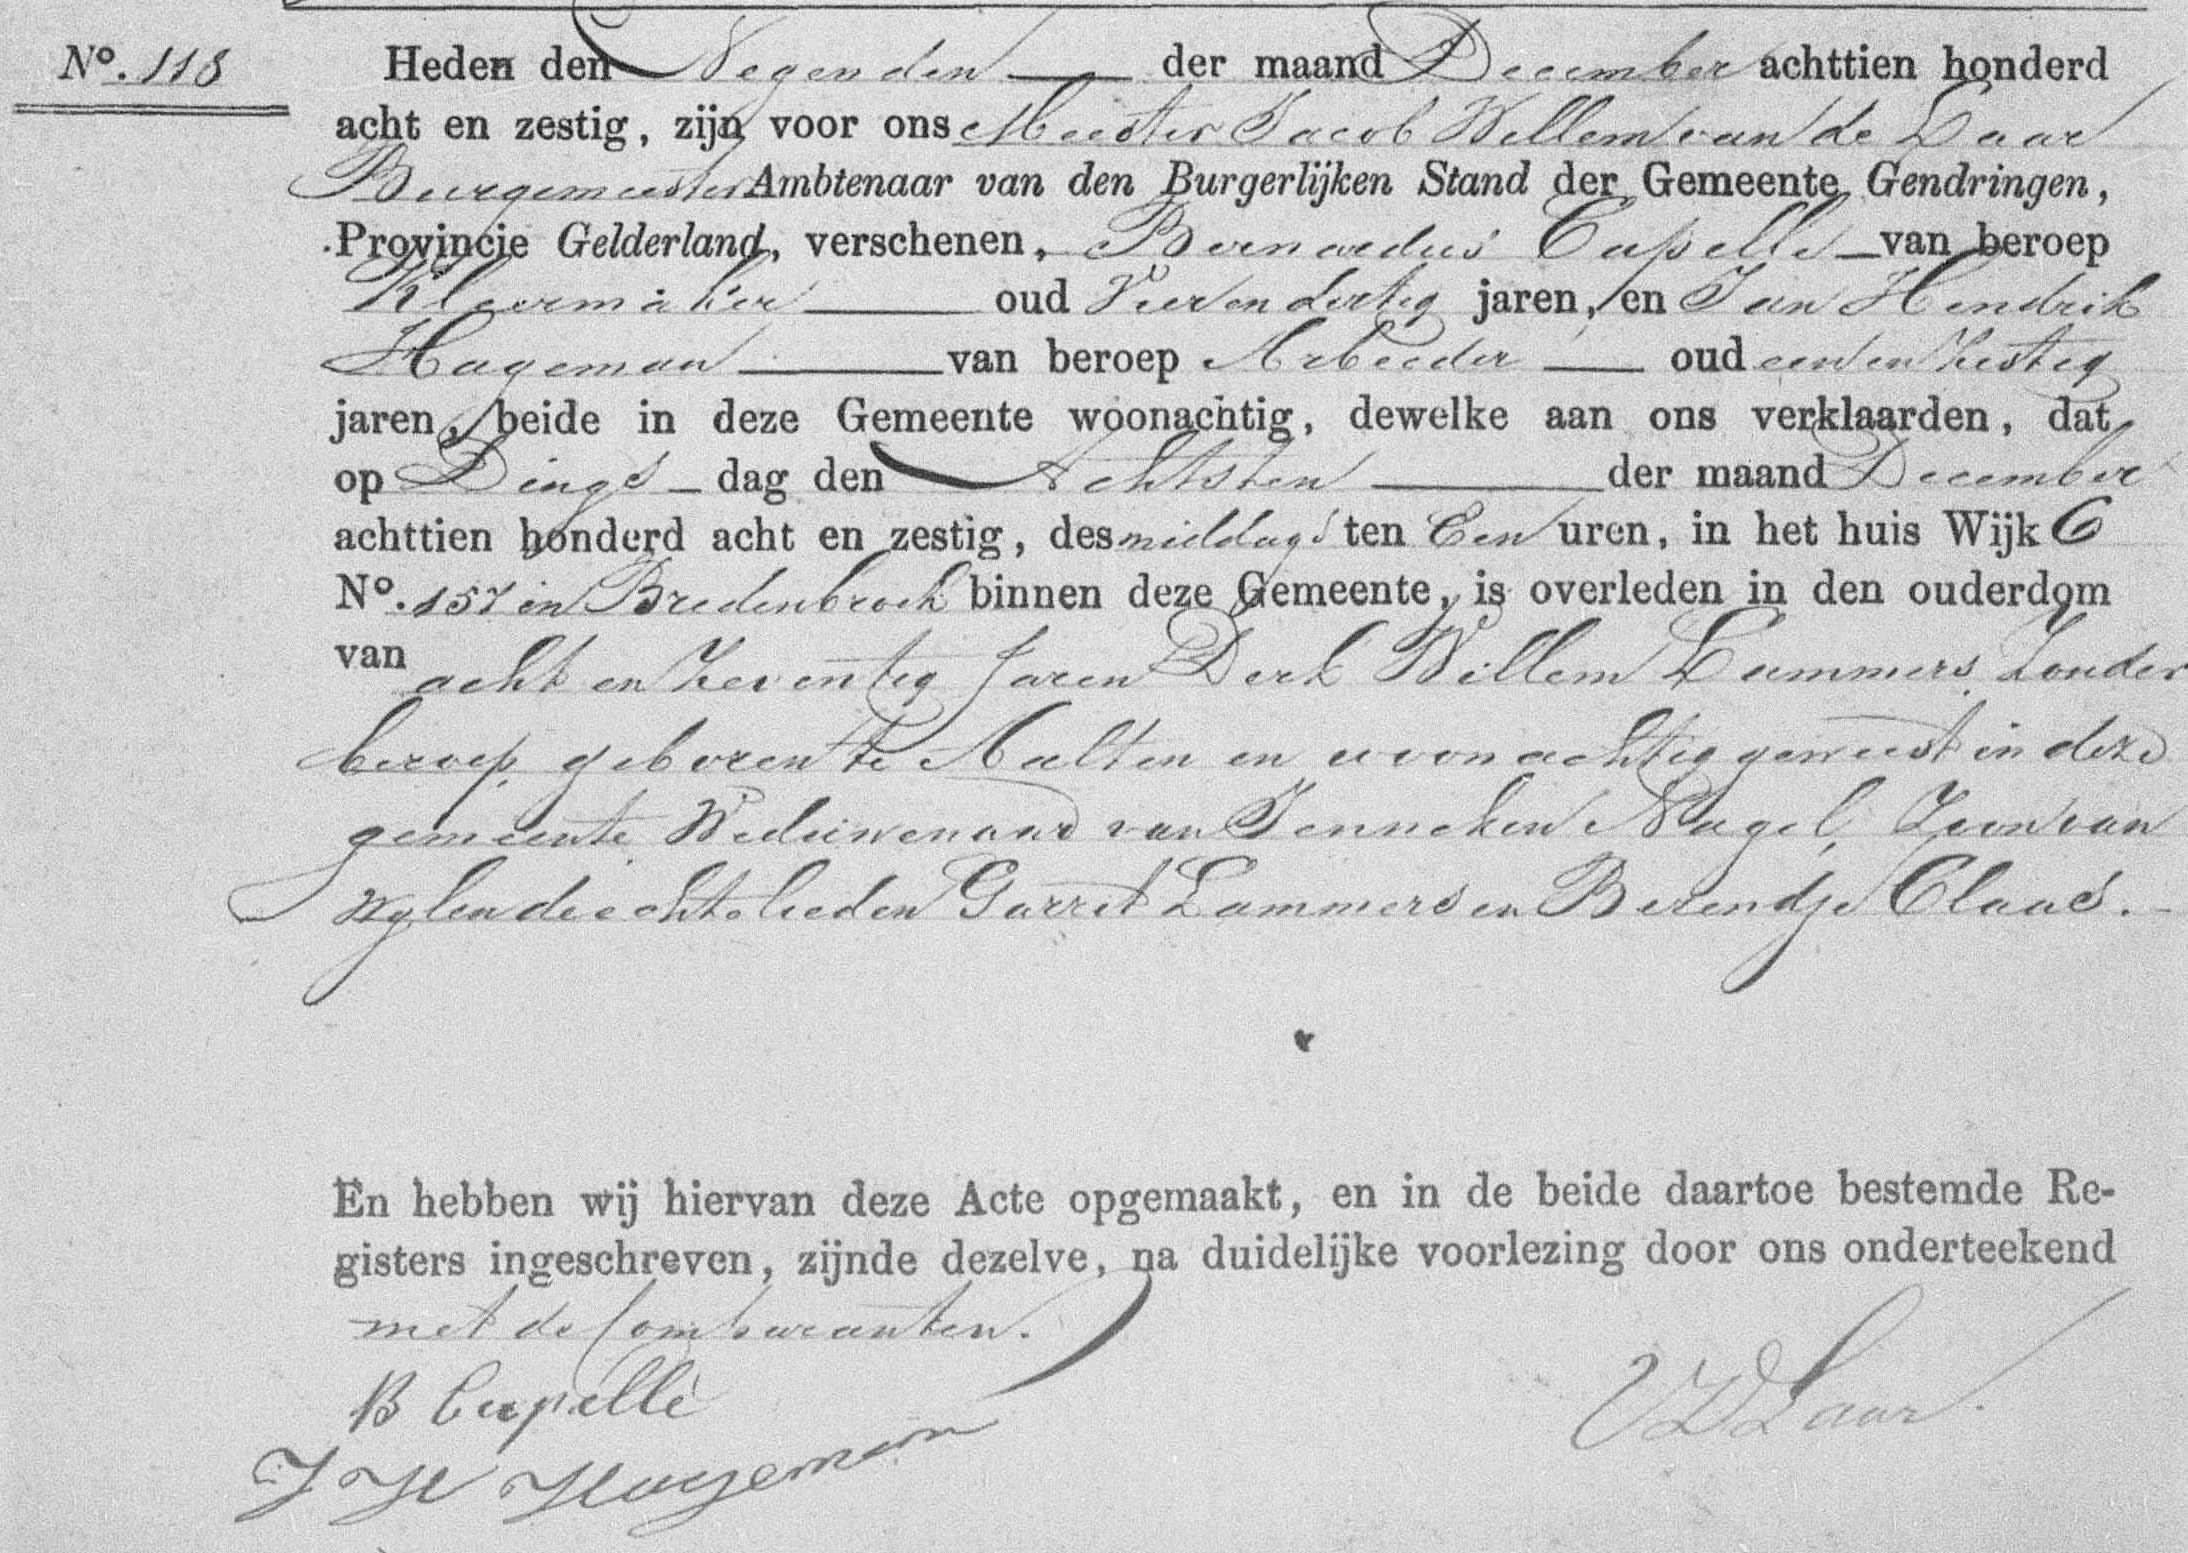 No. 118 Heden den Negenden der maand December achttien honderd
acht en zestig, zijn voor ons Meester Jacob Willem van de Laar
Burgemeester Ambtenaar van den Burgerlijken Stand der Gemeente Gendringen,
Provincie Gelderland, verschenen, Bernardus Capelle van beroep
Kleermaker oud Vier en dertig jaren, en Jan Hendrik
Hageman van beroep Arbeider oud een en zestig
jaren, beide in deze Gemeente woonachtig, dewelke aan ons verklaarden, dat
op Dings dag den Achtsten der maand December
achttien honderd acht en zestig, des middags ten Een uren, in het huis Wijk C
No. 157 in Bredenbroek binnen deze Gemeente, is overleden in den ouderdom
van acht en zeventig jaren Derk Willem Lammers, zonder
beroep, geboren te Aalten en woonachtig geweest in deze
gemeente, Weduwenaar van Jenneken Nagel, Zoon van
wylen de echtelieden Garret Lammers en Berendje Claas.
En hebben wij hiervan deze Acte opgemaakt, en in de beide daartoe bestemde Re-
gisters ingeschreven, zijnde dezelve, na duidelijke voorlezing door ons onderteekend
met de Comparanten.
B Capelle
VDLaar
J H Hageman